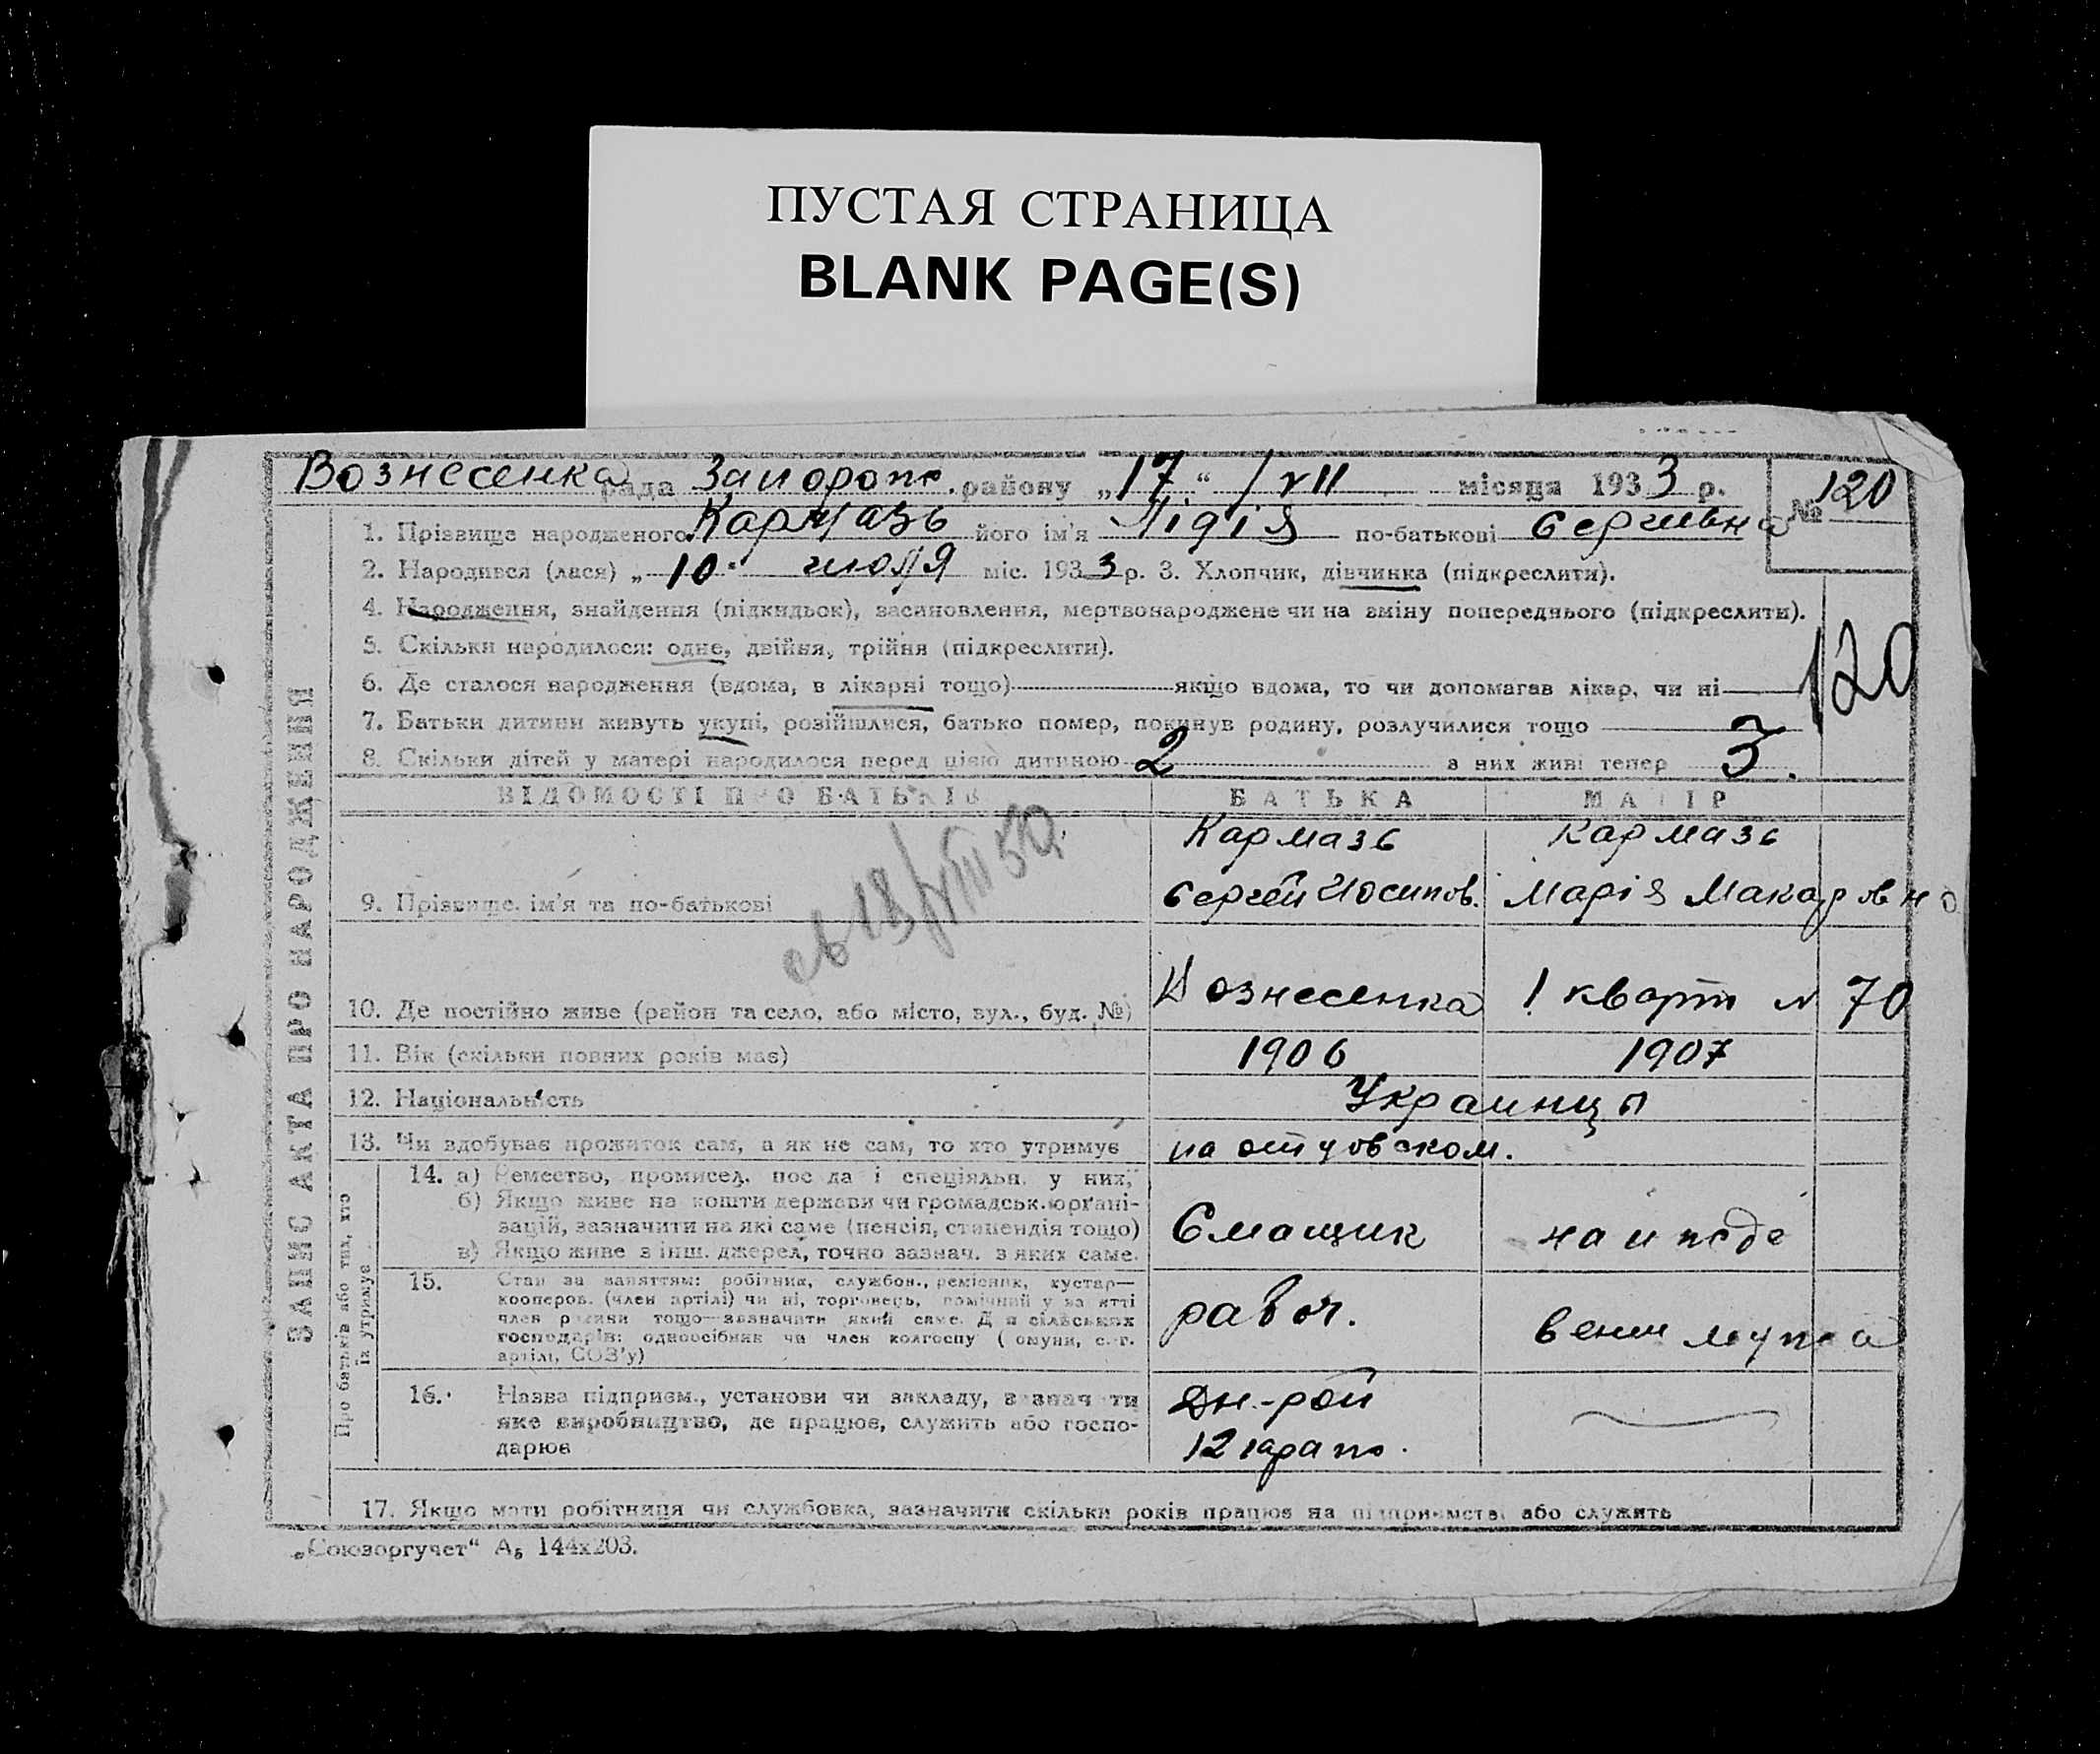 ПУСТАЯ СТРАНИЦА
BLANK PAGE(S)
Вознесенка рада Запорож. району „17“ /VII місяця 1933 р. № 120
1. Прізвище народженого Кармазь його ім'я Лідія по-батькові Сергиевна
2. Народився (лася) „10“ июля міс. 1933 р. 3. Хлопчик, дівчинка (підкреслити).
4. Народження, знайдення (підкидьок), засиновлення, мертвонароджене чи на зміну попереднього (підкреслити).
5. Скільки народилося: одне, двійня, трійня (підкреслити).
120
6. Де сталося народження (вдома, в лікарні тощо) якщо вдома, то чи допомагав лікар, чи ні
7. Батьки дитини живуть укупі, розійшлися, батько помер, покинув родину, розлучилися тощо
8. Скільки дітей у матері народилося перед цією дитиною 2 з них живі тепер 3.
ВІДОМОСТІ ПРО БАТЬКІВ БАТЬКА МАТІР
Кармазь Кармазь
9. Прізвище, ім'я та по-батькові Сергей Иосипов. Марія Макаровна
10. Де постійно живе (район та село, або місто, вул., буд. №) Вознесенка 1 кварт N 70
11. Вік (скільки повних років має) 1906 1907
12. Національність Украинцы
13. Чи здобуває прожиток сам, а як не сам, то хто утримує на отцовском.
ЗАПИС АКТА ПРО НАРОДЖЕННЯ
Про батьків або тих, хто їх утримує
14. а) Ремество, промисел, посада і спеціяльн. у них,
б) Якщо живе на кошти держави чи громадськ. органі-
зацій, зазначити на які саме (пенсія, стипендія тощо) Смащик на ижде
в) Якщо живе з інш. джерел, точно зазнач. з яких саме.
15. Стан за заняттям: робітник, службов., ремісник, кустар—
кооперов. (член артілі) чи ні, торговець, помічний у занятті
член родини тощо—зазначити який саме. Для сільських
господарів: одноосібник чи член колгоспу (комуни, с.-г.
артілі, СОЗ'у) рабоч. мужа
16. Назва підприєм., установи чи закладу, зазначити
яке виробництво, де працює, служить або госпо-
дарює
12 гараж.
17. Якщо мати робітниця чи службовка, зазначити скільки років працює на підприємстві або служить
„Союзоргучет“ А5 144х203.